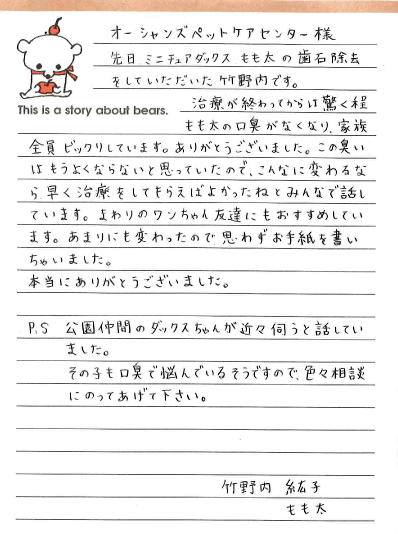 オーシャンズペットケアセンター様
先日 ミニチュアダックス もも太 の 歯石除去
をしていただいた 竹野内です。
This is a story about bears.
治療が終わってからは 驚く程
もも太の口臭がなくなり、家族
全員 ビックリしています。ありがとうございました。この臭い
はもうよくならないと思っていたので、こんなに変わるな
ら 早く治療をしてもらえばよかったねとみんなで話し
ています。まわりのワンちゃん友達にもおすすめしてい
ます。あまりにも変わったので 思わずお手紙を書い
ちゃいました。
本当にありがとうございました。
P.S 公園仲間のダックスちゃんが近々伺うと話してい
ました。
その子も口臭で悩んでいるそうですので、色々相談
にのってあげて下さい。
竹野内 紘子
もも太